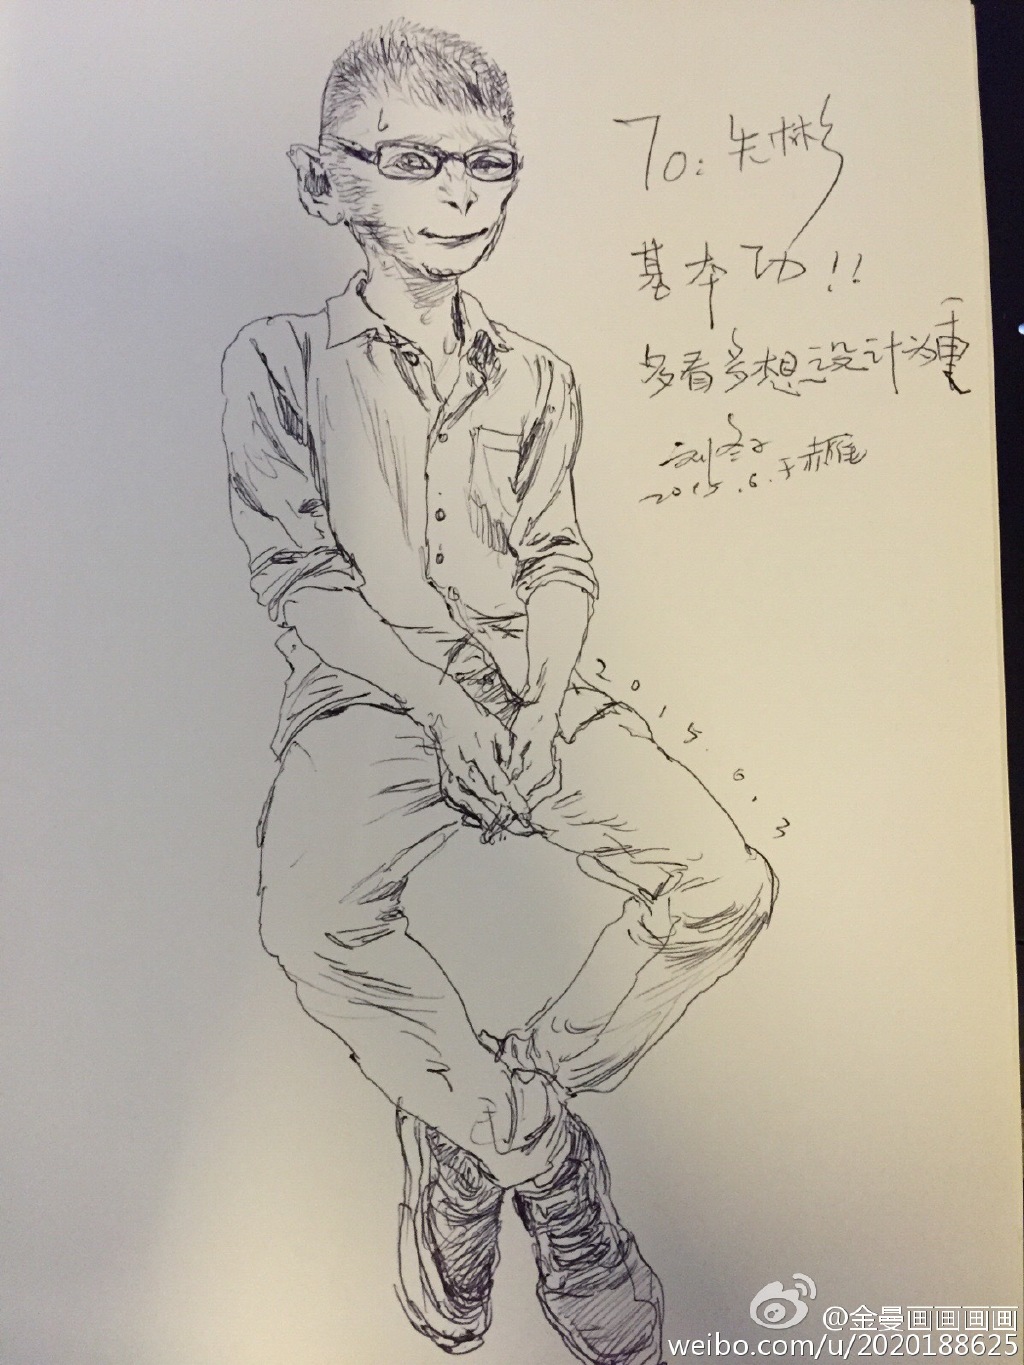 To: 朱彬
基本功!!
多看多想设计为重
刘冬子
2015.6.于赤雁
2015.6.3
@金曼画画画画
weibo.com/u/2020188625